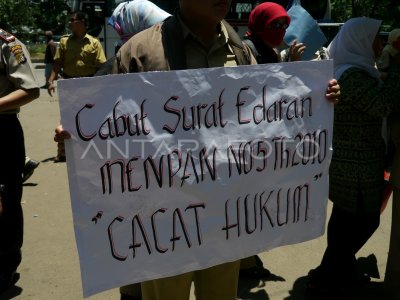 Cabut Surat Edaran
MENPAN NO5 Th 2010
"CACAT HUKUM"
ANTARA FOTO